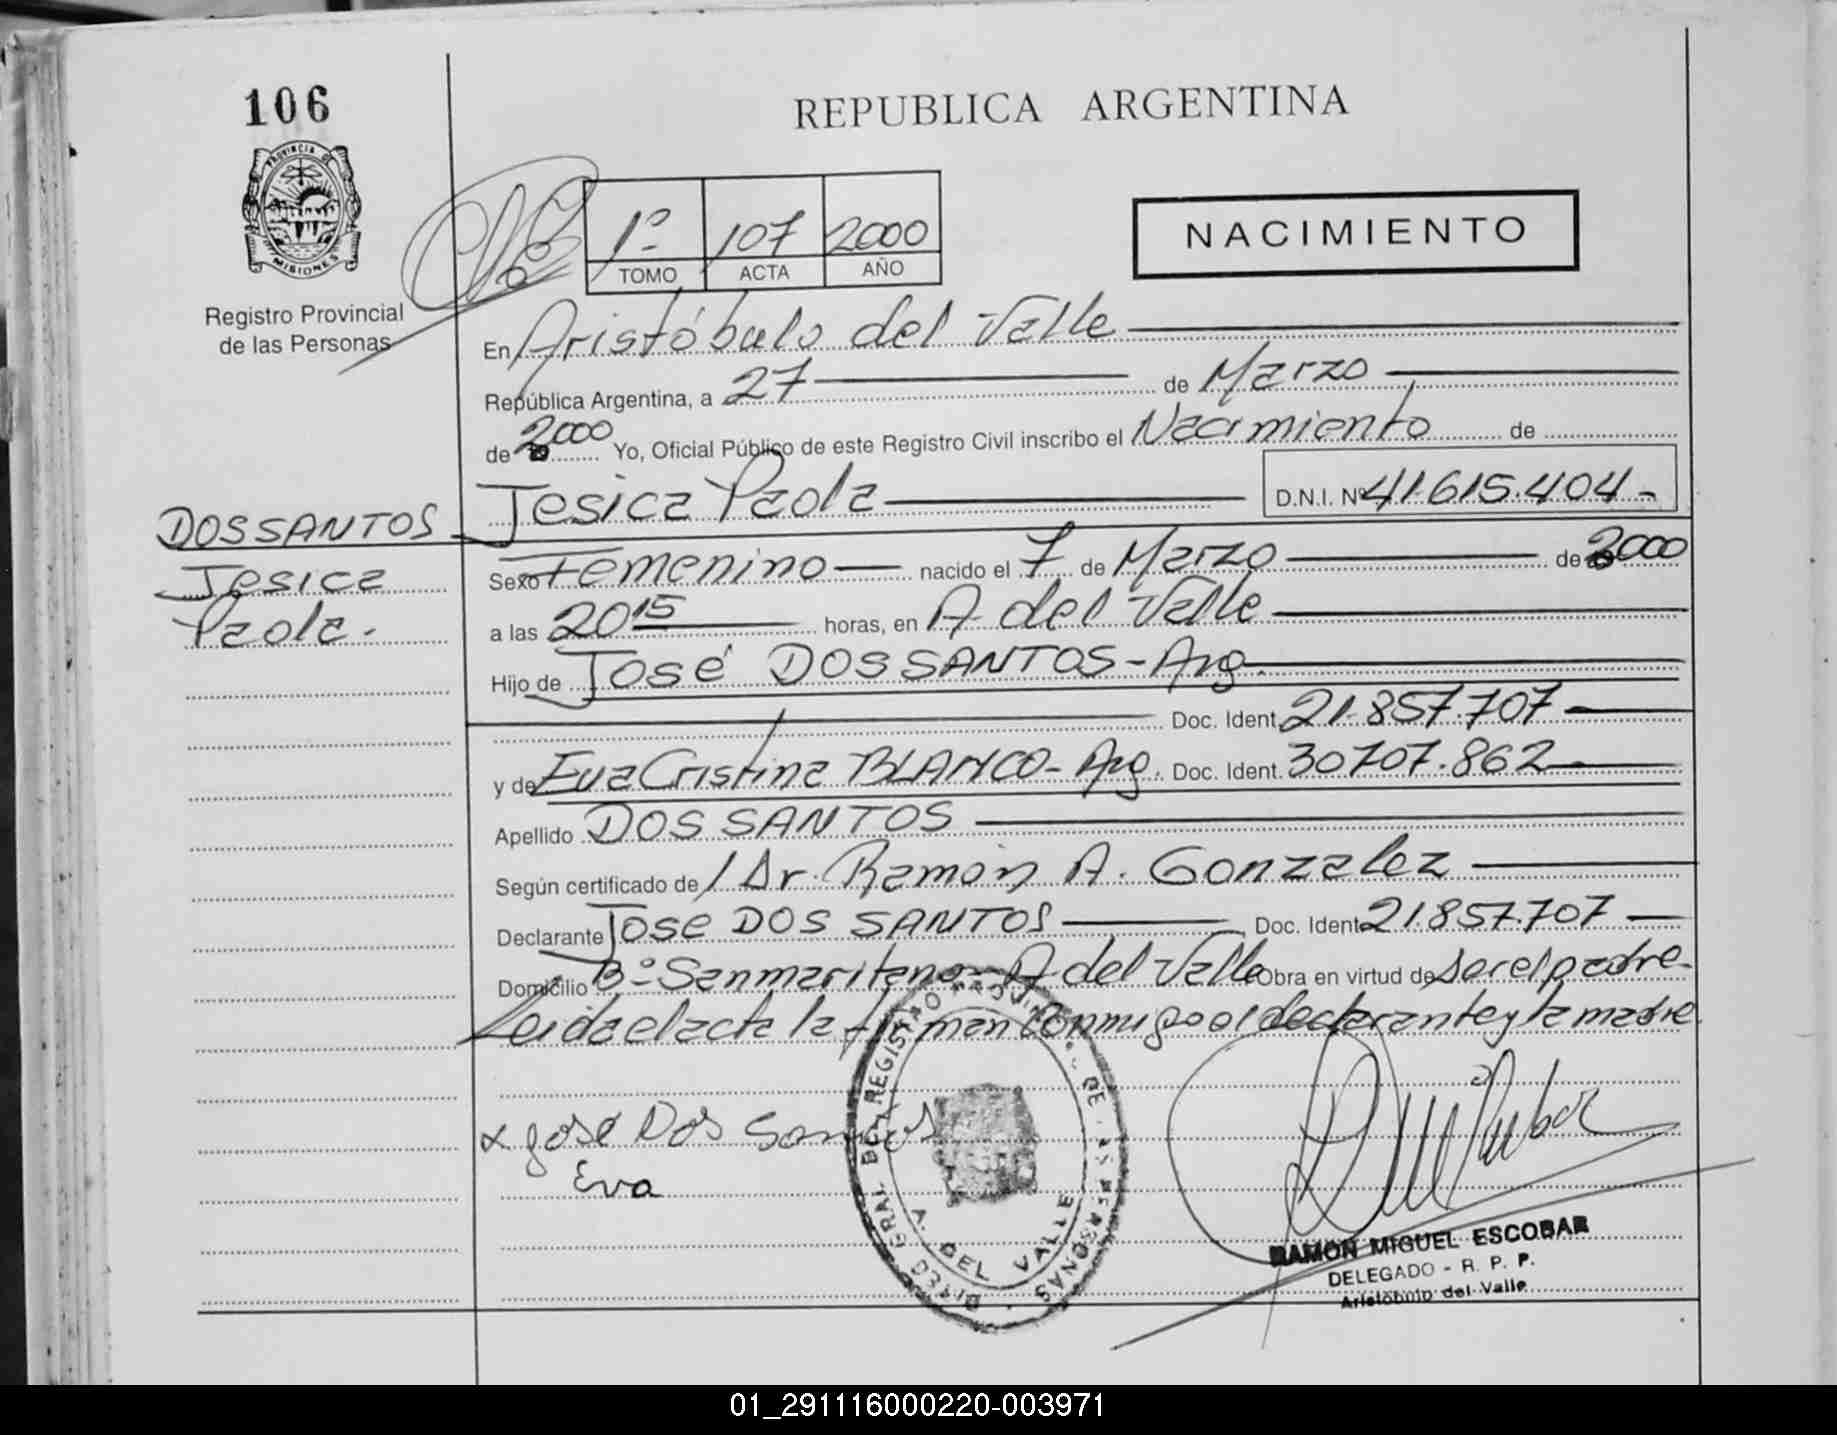 106
REPUBLICA ARGENTINA
PROVINCIA DE
MISIONES
Registro Provincial
de las Personas
1º 107 2000
TOMO ACTA AÑO
NACIMIENTO
En Aristóbulo del Valle
República Argentina, a 27 de Marzo
de 2000 Yo, Oficial Público de este Registro Civil inscribo el Nacimiento de
Jesica Paola D.N.I. Nº 41.615.404.-
DOS SANTOS
Jesica
Paola.
Sexo Femenino nacido el 7 de Marzo de 2000
a las 20 15 horas, en A del Valle
Hijo de José DOS SANTOS - Arg.
Doc. Ident. 21.857.707
y de Eva Cristina BLANCO - Arg. Doc. Ident. 30707.862
Apellido DOS SANTOS
Según certificado de / Dr. Ramón A. Gonzalez
Declarante Jose DOS SANTOS Doc. Ident 21.857.707
Domicilio Bº Sanmaritano - A del Valle Obra en virtud de ser el padre
Leida el acta la firman conmigo el declarante y la madre
x jose Dos Santos
Eva
DIREC. GRAL. DEL REGISTRO PROVINC. DE LAS PERSONAS
A. DEL VALLE
RAMON MIGUEL ESCOBAR
DELEGADO - R. P. P.
Aristóbulo del Valle
01_291116000220-003971